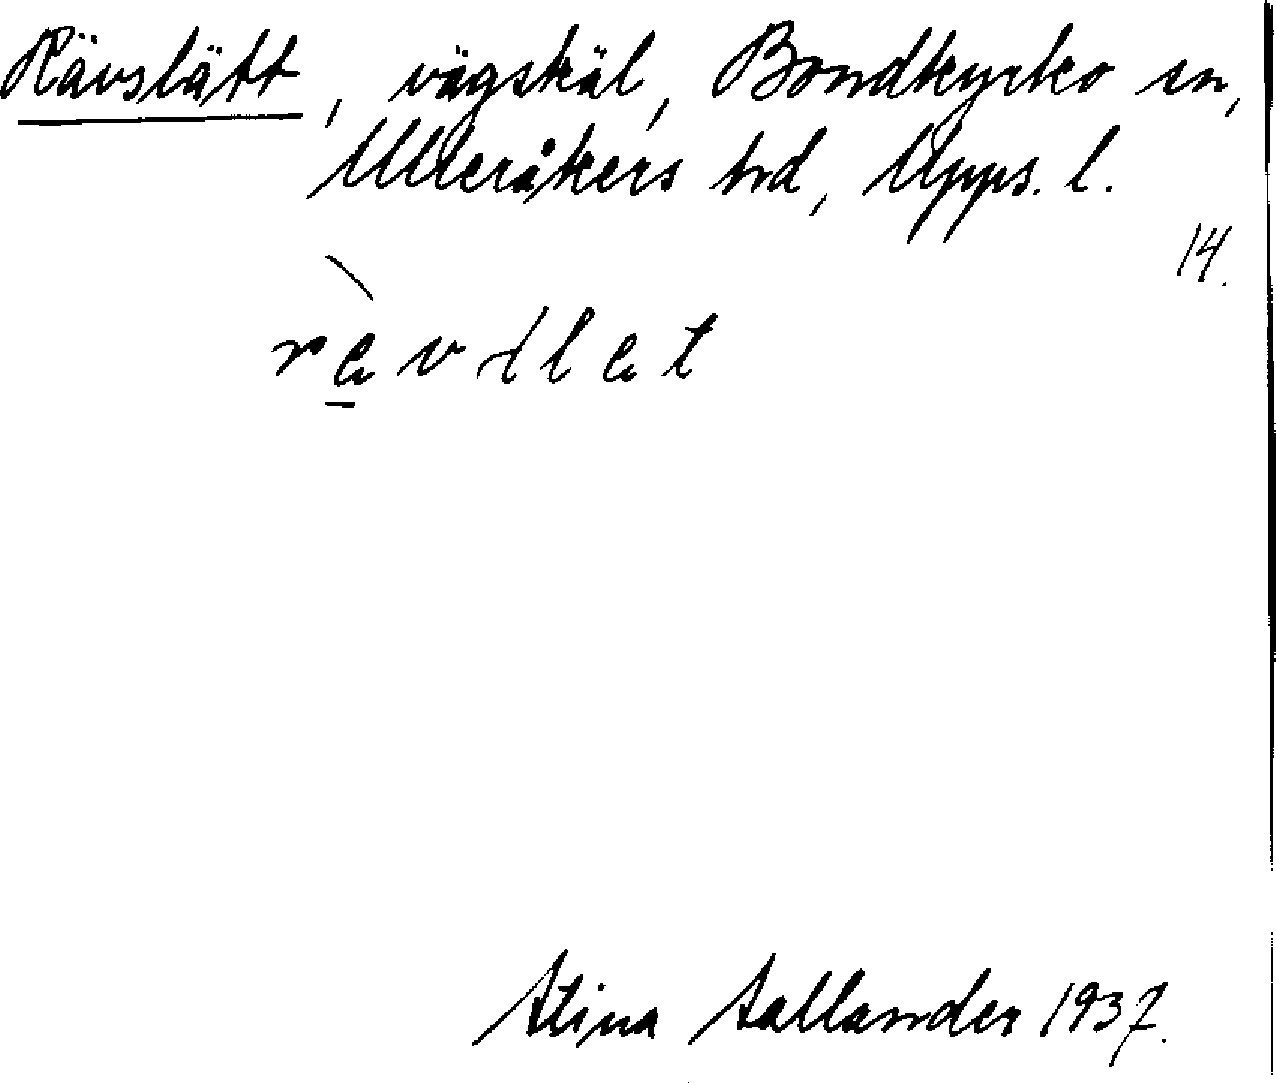 Rävslätt, vägskäl, Bondkyrko sn,
Ulleråkers hd, Upps. l.
14.
Stina Sallander 1937.